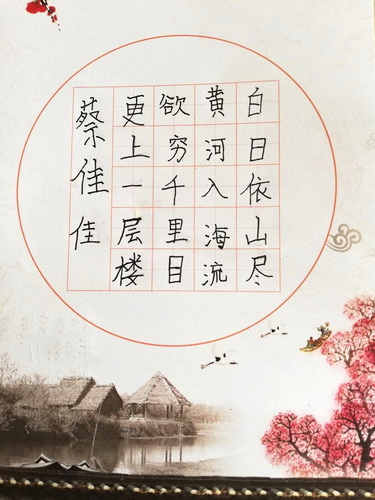 白日依山尽
黄河入海流
欲穷千里目
更上一层楼
蔡佳佳